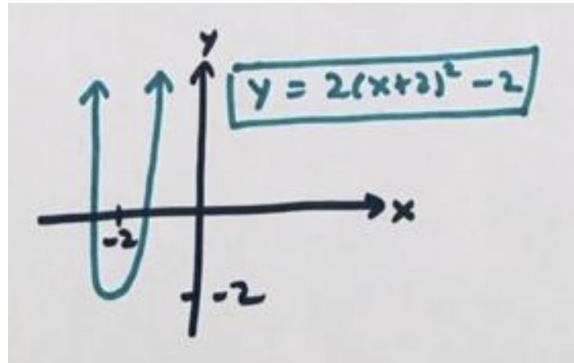 y
y = 2(x+2)² - 2
x
-2
-2